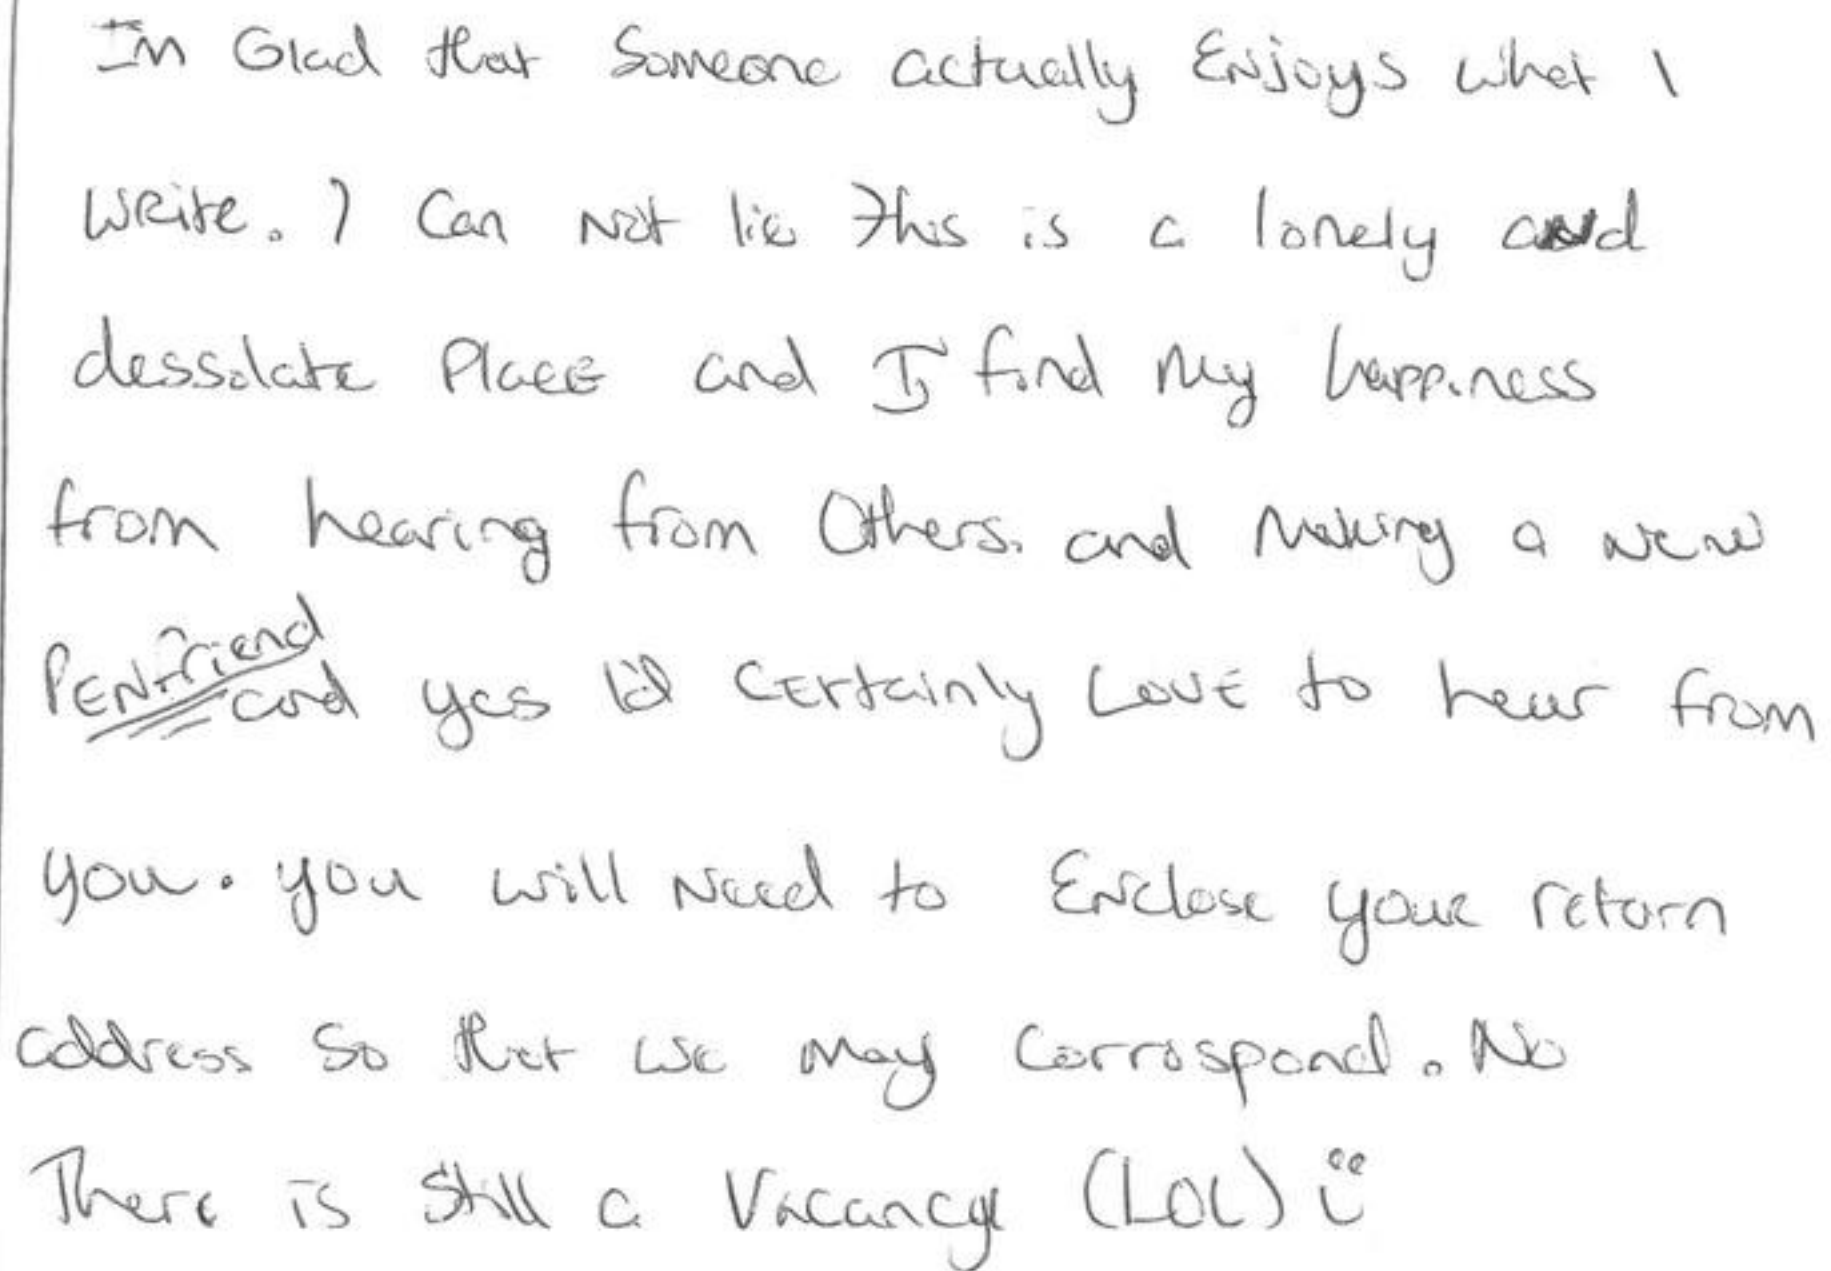 Im Glad that Someone actually Enjoys what I
WRite. I Can Not lie this is a lonely and
dessolate PlacE and I find My happiness
from hearing from Others. and Making a new
PENfriend and yes I'd CErtainly LovE to hear from
you. you will Need to Enclose youR return
address So that we may Corrospond. No
There is Still a Vacancy (LOL) ü